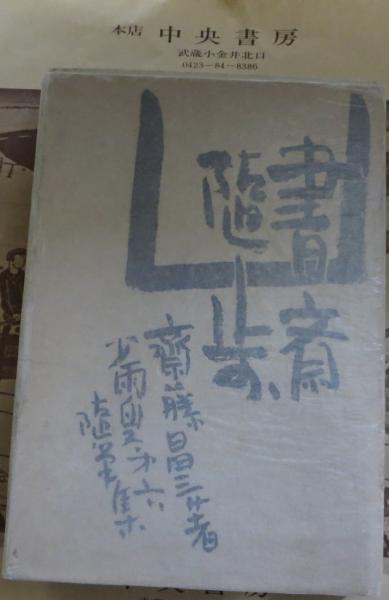 本店 中央書房
武蔵小金井北口
0423-84-8386
書斎
随歩
齋藤昌三著
少雨叟第六
随筆集